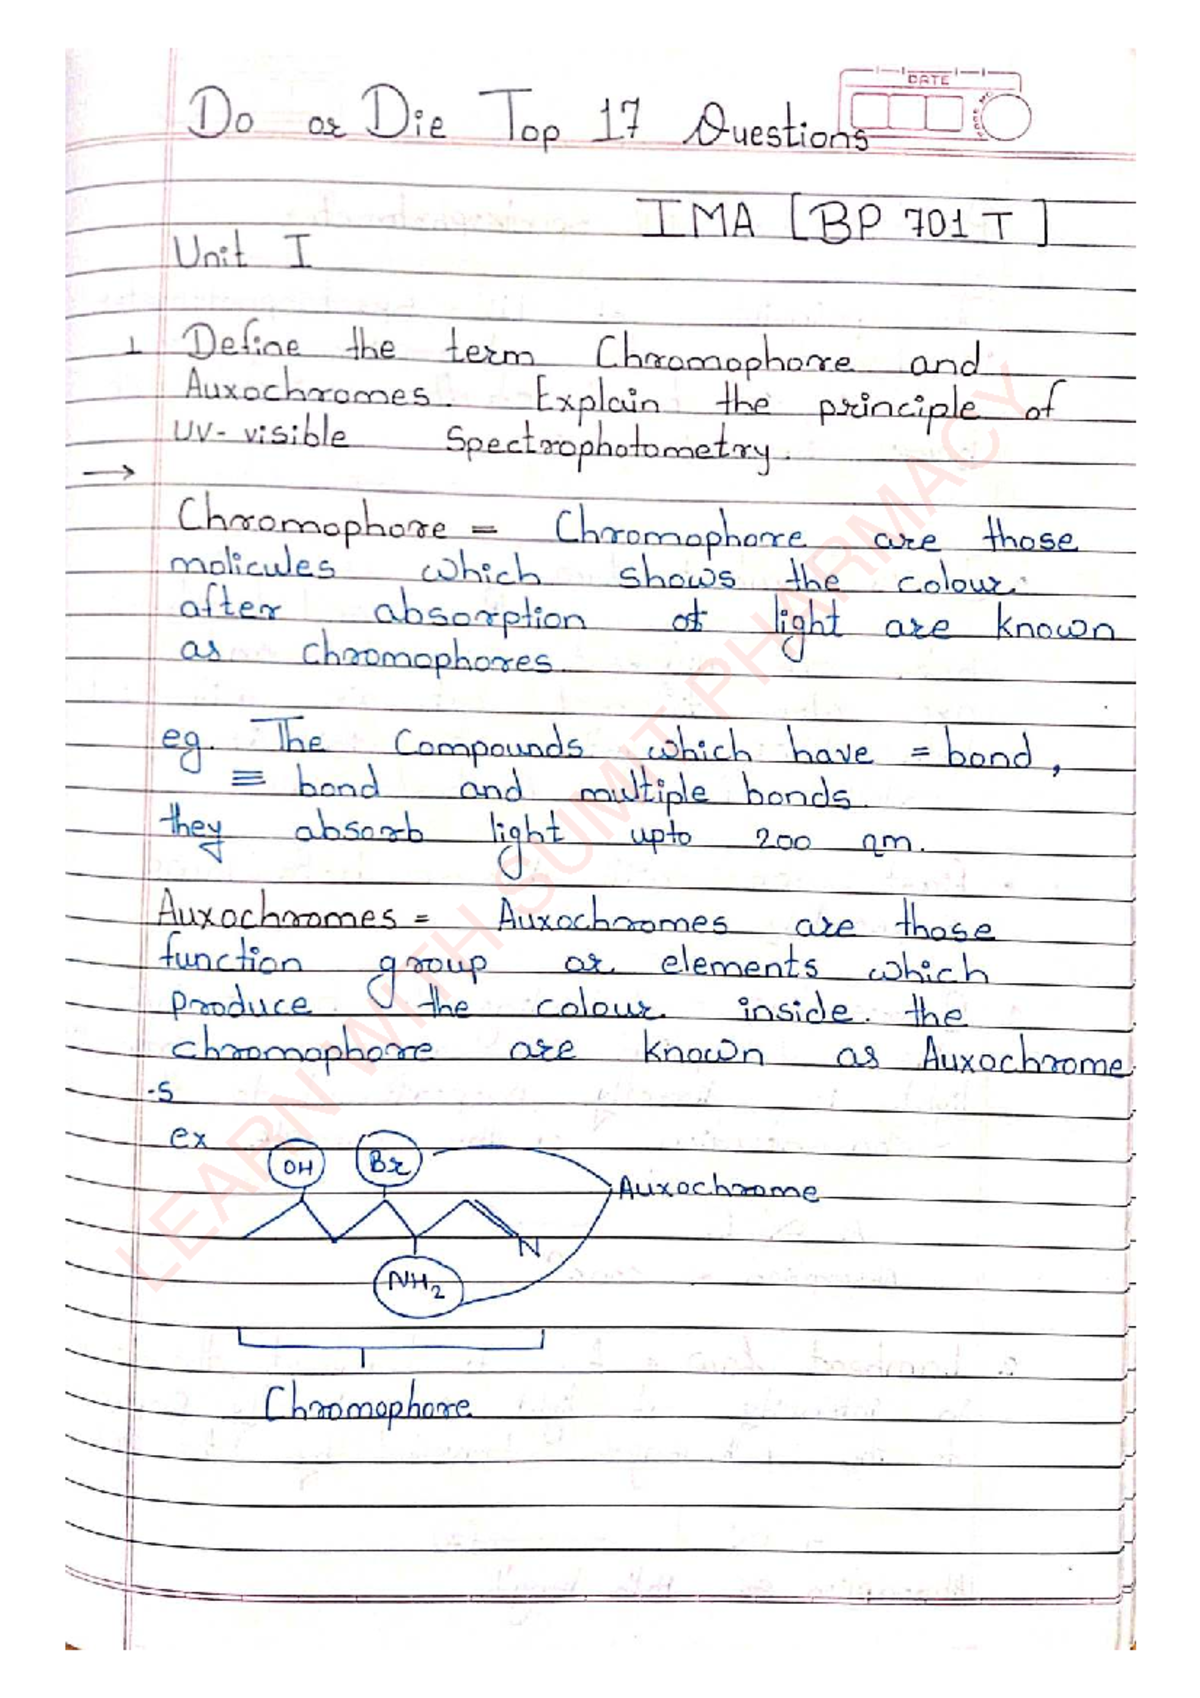 DATE
Do or Die Top 17 Questions
IMA [BP 701 T]
Unit I
1 Define the term Chromophore and
Auxochromes. Explain the principle of
UV-visible Spectrophotometry.
→
Chromophore = Chromophore are those
molicules which shows the colour
after absorption of light are known
as chromophores.
eg. The Compounds which have = bond,
≡ bond and multiple bonds.
they absorb light upto 200 nm.
Auxochromes = Auxochromes are those
function group or elements which
produce the colour inside the
chromophore are known as Auxochrome
-s
ex
OH Br
Auxochrome
N
NH2
Chromophore
LEARN WITH SUMIT PHARMACY